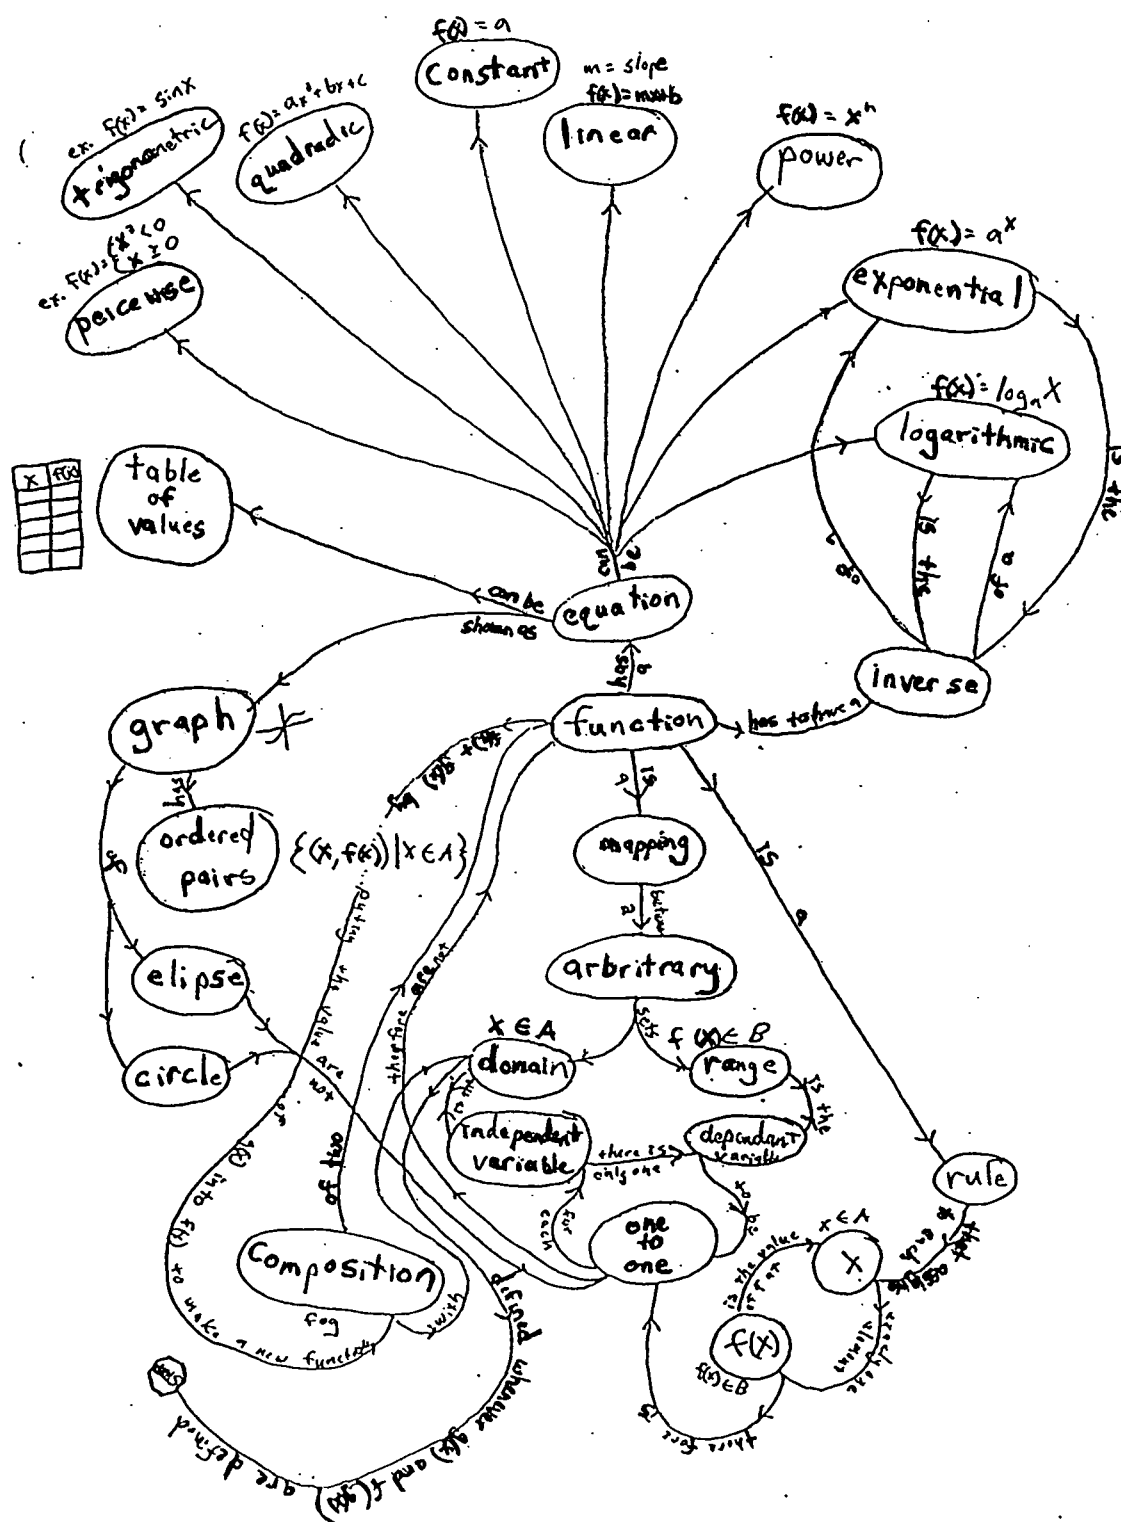 f(x) = a
constant
m = slope
f(x)=mx+b
linear
f(x) = xⁿ
power
ex. f(x) = sinx
trigonametric
f(x) = ax²+bx+c
quadradic
ex. f(x) = { x² < 0
{ x ≥ 0
peicewise
f(x) = aˣ
exponential
f(x) = logₐX
logarithmic
is the
is the
of a
of a
inverse
x f(x)
table
of
values
can be
shown as
can
be
equation
has
a
function
has to have a
graph
has
ordered
pairs
{(x, f(x)) | x ∈ A}
of
elipse
circle
are
not
therefore are not
is
a
mapping
between
2
arbritrary
sets
x ∈ A
domain
f(x) ∈ B
range
is the
is the
independent
variable
there is
only one
dependant
variable
for
each
to
be
one
to
one
is
a
rule
that assigns
to each
x ∈ A
X
exactly one
element
f(x)
f(x) ∈ B
is the value
of f at
there fore
is
of two
composition
fog
with
putting the value
of g(x) into f(x) to make a new function
defined whenever g(x) and f(g(x)) are defined